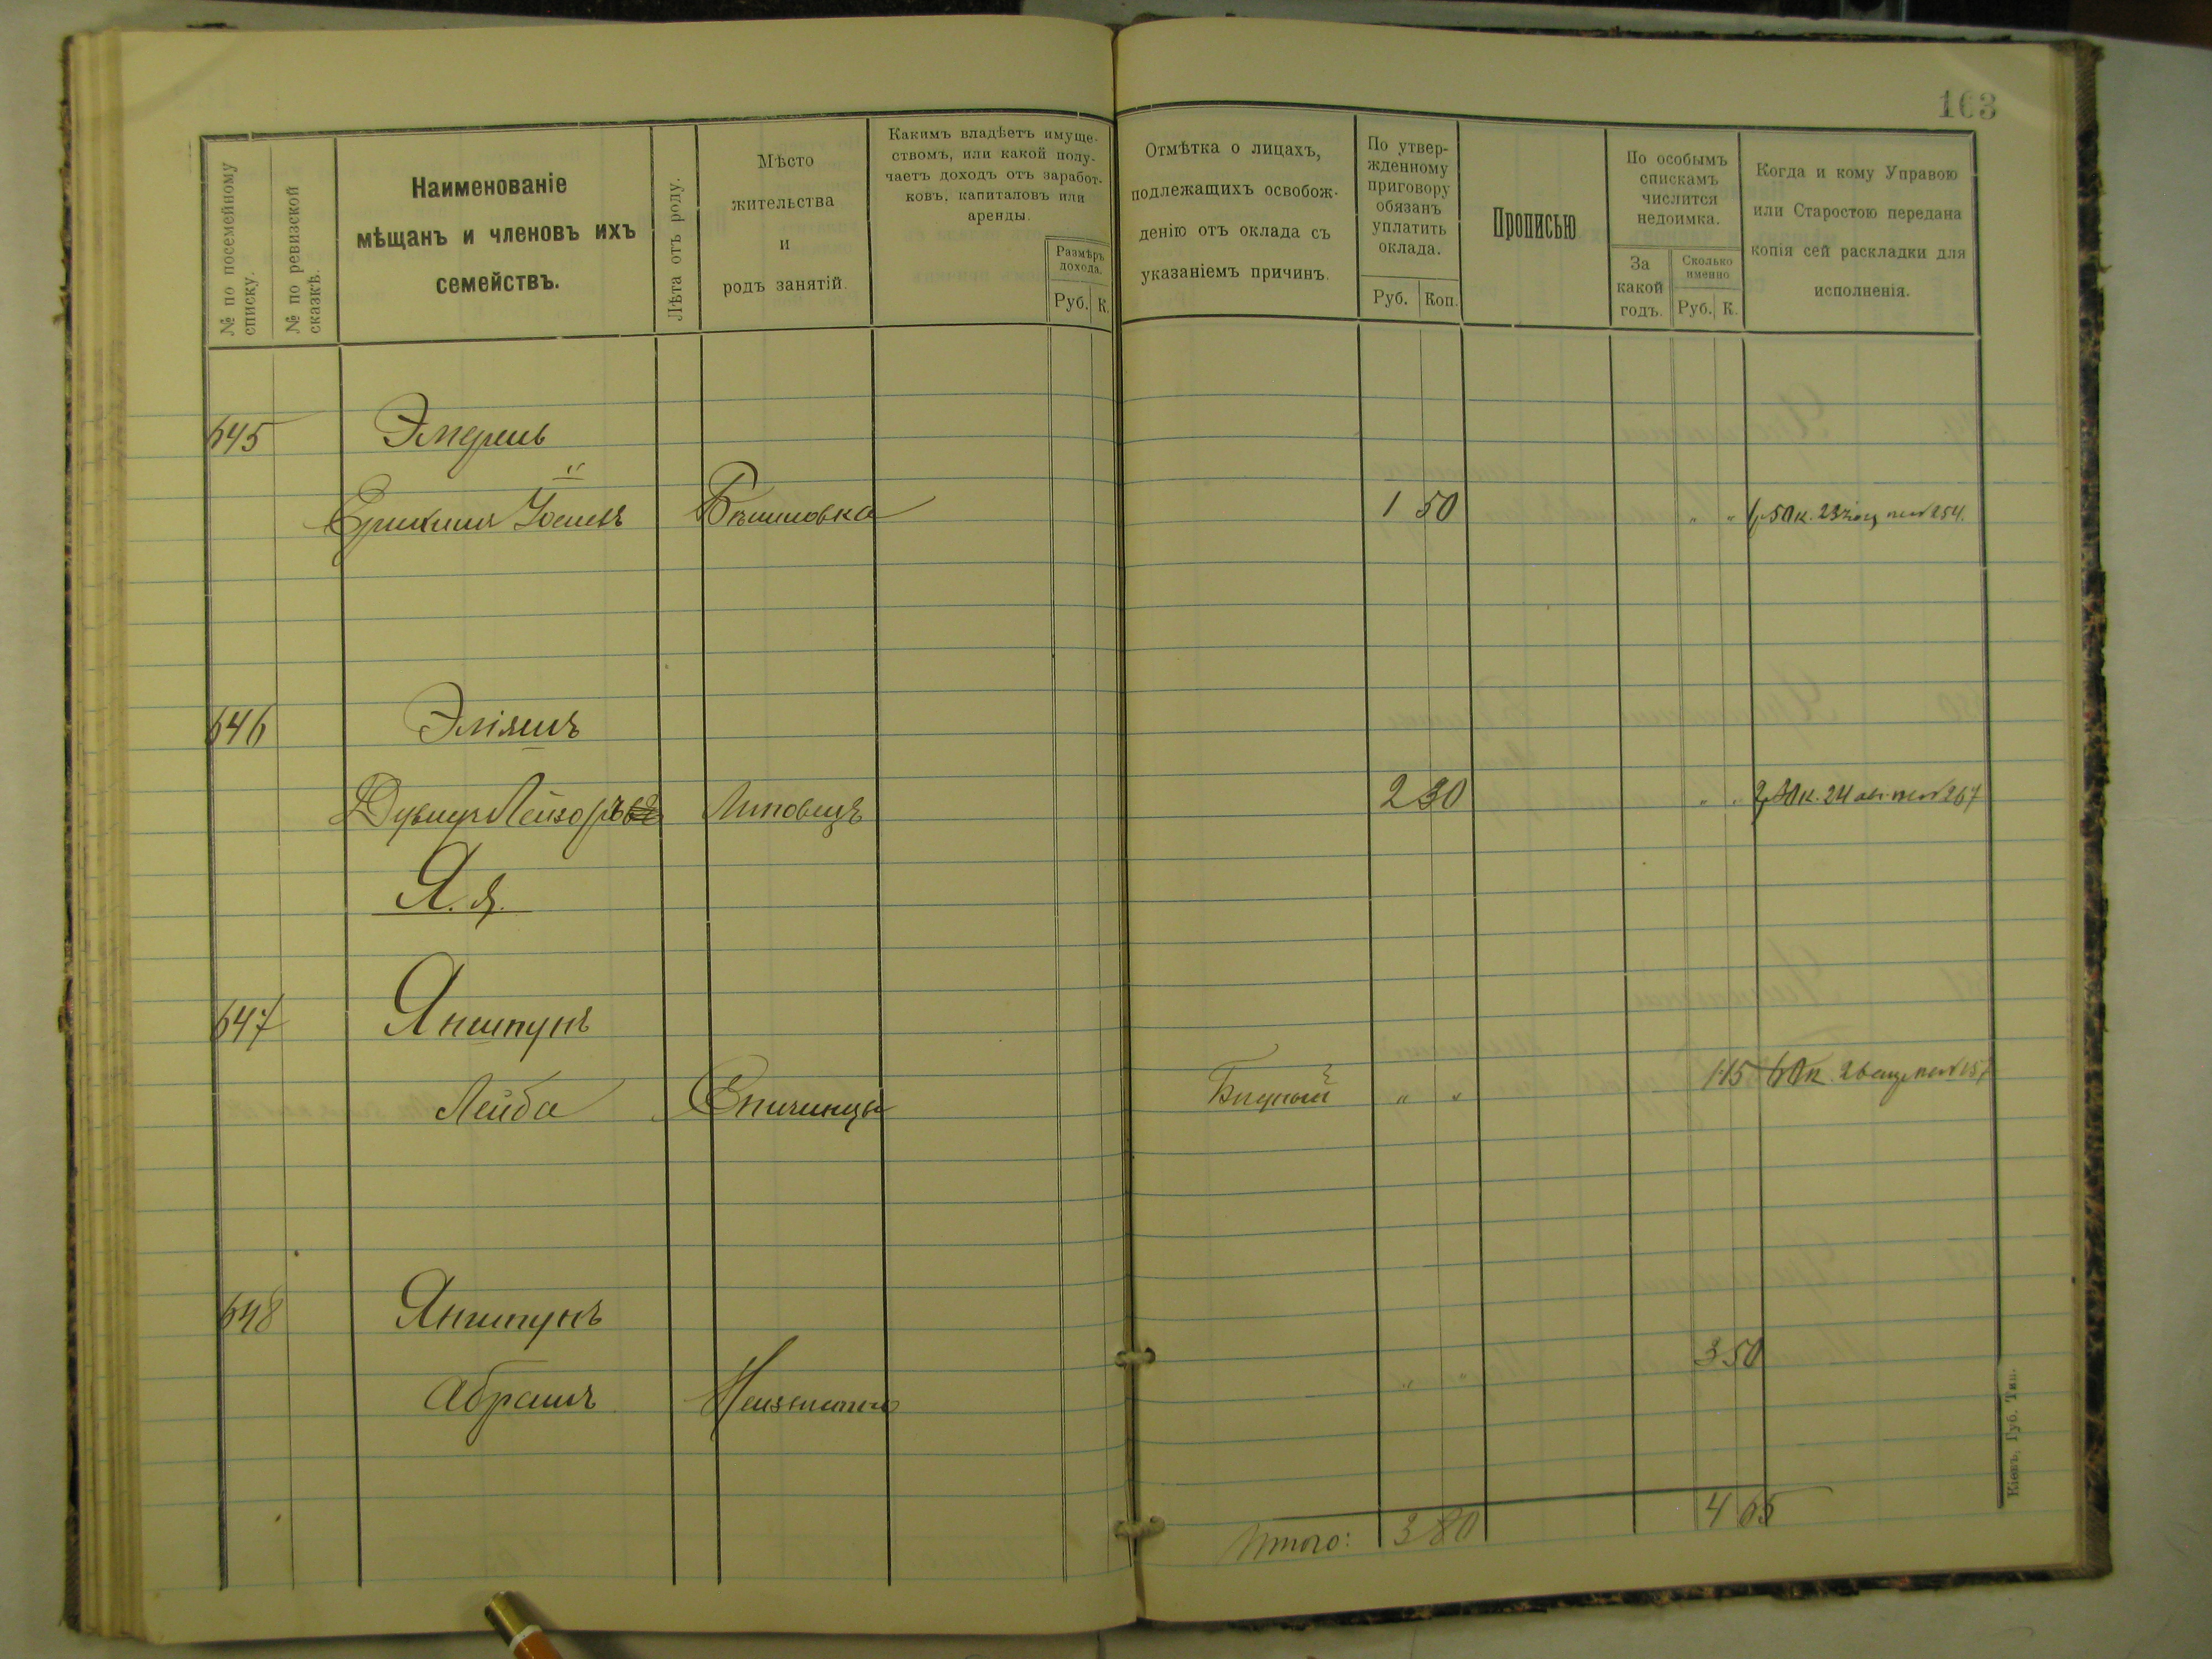 163
№ по посемейному списку.
№ по ревизской сказкѣ.
Наименованіе
мѣщанъ и членовъ ихъ
семействъ.
Лѣта отъ роду.
Мѣсто
жительства
и
родъ занятій.
Какимъ владѣетъ имуще-
ствомъ, или какой полу-
чаетъ доходъ отъ заработ-
ковъ, капиталовъ или
аренды.
Размѣръ
дохода.
Руб. К.
Отмѣтка о лицахъ,
подлежащихъ освобож-
денію отъ оклада съ
указаніемъ причинъ.
По утвер-
жденному
приговору
обязанъ
уплатить
оклада.
Руб. Коп.
Прописью
По особымъ
спискамъ
числится
недоимка.
За
какой
годъ.
Сколько
именно
Руб. К.
Когда и кому Управою
или Старостою передана
копія сей раскладки для
исполненія.
645
1 50 " " 1 р 50 к. 23 254.
646 Эліяшъ
Лейзоръ Липовецъ 2 30 " " 2 р 30 к. 24 267
Я. я.
647 Яншпунъ
Лейба Епичинцы Бѣдный " " 1 15 60 к. 26
648 Яншпунъ
Абрамъ Неизвѣстно " " 3 50
Итого: 3 80 4 65
Кіевъ, Губ. Тип.